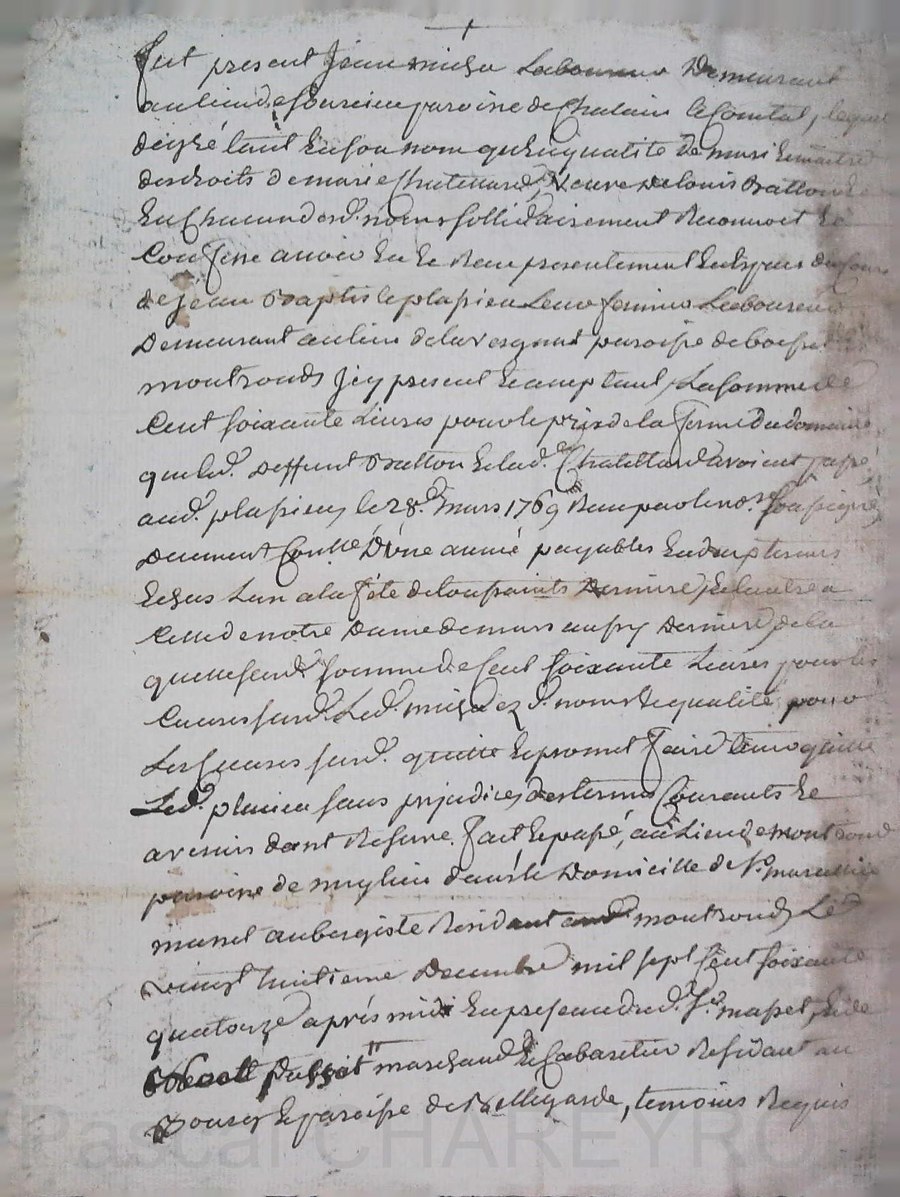 fut present Jean migea Laboureur Demeurant
au lieu de Sourcieu paroisse de Chalain le Comtal, lequel
de gré tant En son nom qu'En qualité De mari Et maitre
des droits de marie Chatellard, Veuve de louis Batton Et
En Chacun desd. noms sollidairement Reconnoit Et
Confesse avoir Eu Et Receu presentement En Espece du Cours
de Jean Baptiste plasieu Laboureur
Demeurant au lieu de la paroisse de boisset
montrond, Icy present Et acceptant, La somme de
Cent soixante Livres pour le prix de la ferme du domaine
que led. Deffunt Batton Et lad. Chatellard avoient passé
aud. plasieu le 28e mars 1769 Receu par le nore. soussigné
Duement Contlé, D'une année payables En deux termes
Egaux L'un a la fête de toussaints Derniere, Et l'autre a
Celle de notre Dame de mars aussy Derniere, de la
quelle susd. somme de Cent soixante Livres pour les
Causes susd. Led. migea Ez d. noms Et qualité, pour
Les Causes susd. quitte Et promet faire tenir quitte
Led. plasieu sans prejudice des termes Courants Et
a venir dont Reserve. fait Et passé, au Lieu de montrond
paroisse de meylieu dans le Domicille de Sr. marcellin
masset aubergiste Residant montrond, Le
vingt huitieme Decembre mil sept Cent soixante
quatorze après midi En presence dud. Sr. masset, Et de
marchand Et Cabaretier Residant au
Bourg Et paroisse de Bellegarde, temoins Requis
Pascal CHAREYRO